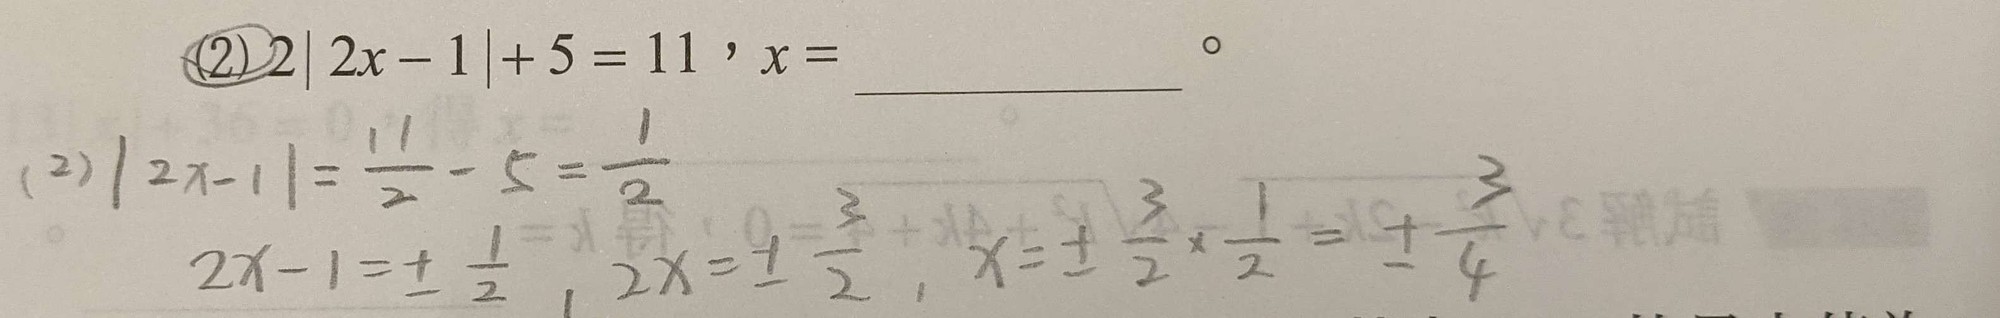 (2) 2| 2x − 1 | + 5 = 11，x = ________。
(2) | 2x-1 | = 11/2 - 5 = 1/2
2x-1 = ± 1/2 , 2x = ± 3/2 , x = ± 3/2 × 1/2 = ± 3/4